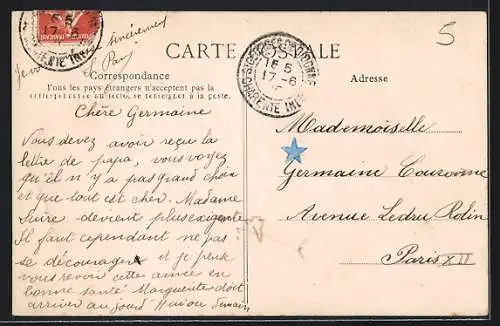 5
CARTE POSTALE
Correspondance
Tous les pays étrangers n'acceptent pas la
correspondance au recto, se renseigner à la poste.
Adresse
ST GEORGES DE DIDONNE
16 5
17-6
CHARENTE INF
Je vous sincèrement
Chère Germaine
Vous devez avoir reçu la
lettre de papa, vous voyez
qu'il n'y a pas grand choix
et que tout est cher. Madame
Suire devient plus exigente
Il faut cependant ne pas
se décourager et je peux
vous revoir cette année en
bonne santé Marguerite doit
arriver aujourd'hui ou demain
Mademoiselle
Germaine Couronne
Avenue Ledru Rolin
Paris XII